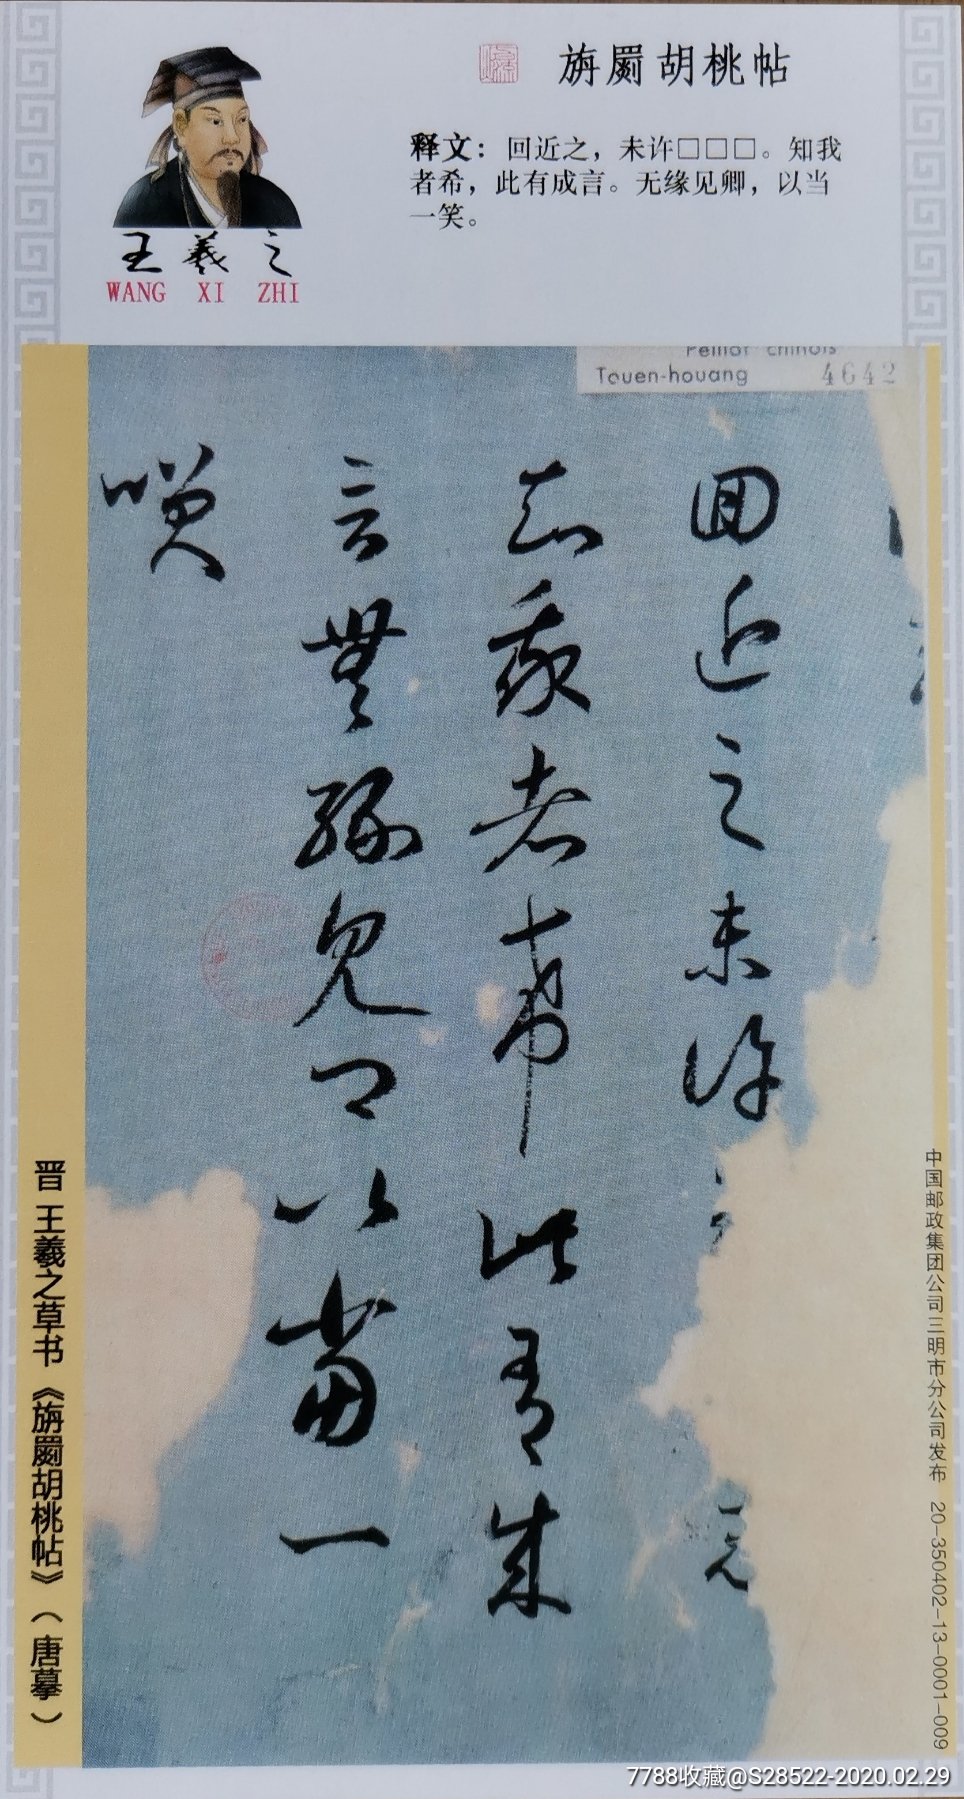 旃罽胡桃帖
释文：回近之，未许□□□。知我
者希，此有成言。无缘见卿，以当
一笑。
王羲之
WANG XI ZHI
Pelliot chinois
Touen-houang 4642
回近之未许
知我者希此有成
言無缘见卿以当一
咲
晋 王羲之草书《旃罽胡桃帖》（唐摹）
中国邮政集团公司三明市分公司发布 20-350402-13-0001-009
7788收藏@S28522-2020.02.29